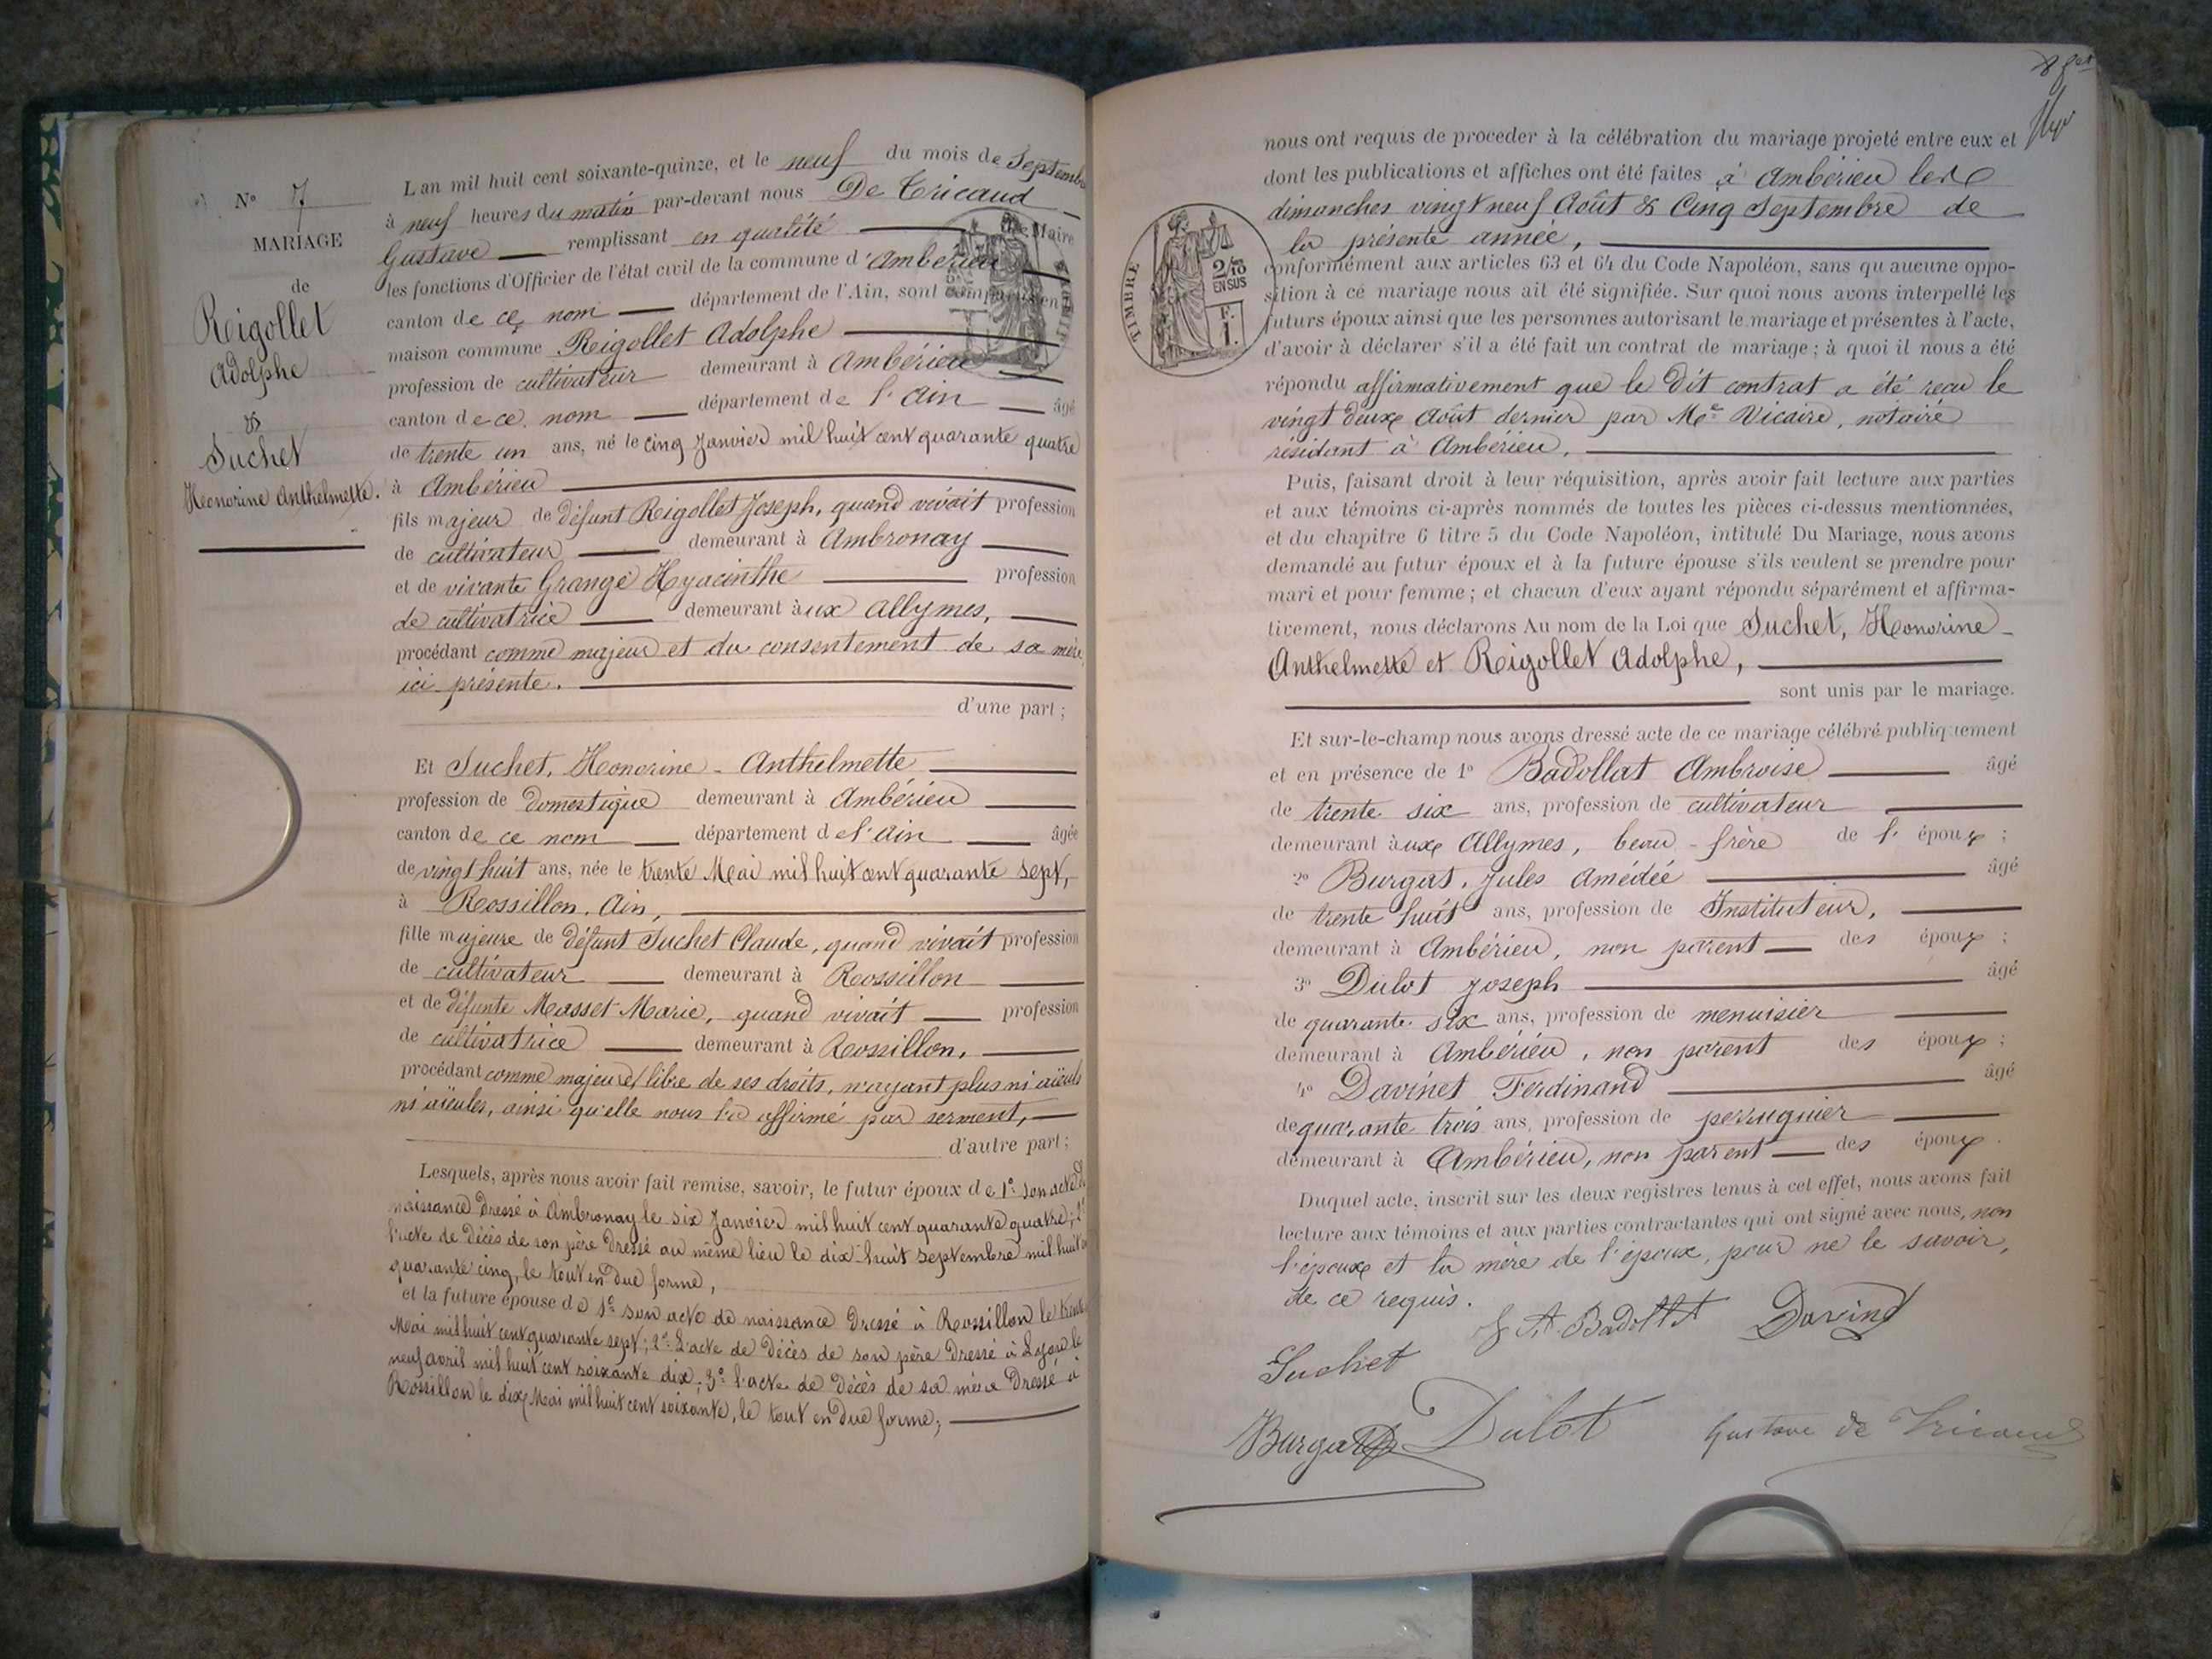 N° 7
MARIAGE
de
Reigollet
Adolphe
&
Suchet
Honorine Anthelmette.
L'an mil huit cent soixante-quinze, et le neuf du mois de Septembre
à neuf heures du matin par-devant nous De Tricaud
Gustave remplissant en qualité de Maire
les fonctions d'Officier de l'état civil de la commune d'Ambérieu
canton de ce nom département de l'Ain, sont comparus en
maison commune Reigollet Adolphe
profession de cultivateur demeurant à Ambérieu
canton de ce nom département de l'Ain âgé
de trente un ans, né le cinq Janvier mil huit cent quarante quatre
à Ambérieu
fils majeur de défunt Reigollet Joseph, quand vivait profession
de cultivateur demeurant à Ambronay
et de vivante Grange Hyacinthe profession
de cultivatrice demeurant aux Allymes,
procédant comme majeur et du consentement de sa mère
ici présente.
d'une part ;
Et Suchet, Honorine - Anthelmette
profession de domestique demeurant à Ambérieu
canton de ce nom département de l'Ain âgée
de vingt huit ans, née le trente Mai mil huit cent quarante sept,
à Rossillon, Ain,
fille majeure de défunt Suchet Claude, quand vivait profession
de cultivateur demeurant à Rossillon
et de défunte Masset Marie, quand vivait profession
de cultivatrice demeurant à Rossillon,
procédant comme majeure libre de ses droits, n'ayant plus ni aïeuls
ni aïeules, ainsi qu'elle nous l'a affirmé par serment,
d'autre part ;
Lesquels, après nous avoir fait remise, savoir, le futur époux de 1° son acte de
naissance dressé à Ambronay le six Janvier mil huit cent quarante quatre ; 2°
l'acte de décès de son père dressé au même lieu le dix-huit septembre mil huit
quarante cinq, le tout en due forme,
et la future épouse de 1° son acte de naissance dressé à Rossillon le trente
Mai mil huit cent quarante sept ; 2° L'acte de décès de son père dressé à Lyon le
neuf avril mil huit cent soixante dix ; 3° l'acte de décès de sa mère dressé à
Rossillon le dix Mai mil huit cent soixante, le tout en due forme ;
nous ont requis de proceder à la célébration du mariage projeté entre eux et
dont les publications et affiches ont été faites à Ambérieu les
dimanches vingt neuf Août & Cinq Septembre de
la présente année,
conformément aux articles 63 et 64 du Code Napoléon, sans qu'aucune oppo-
sition à ce mariage nous ait été signifiée. Sur quoi nous avons interpellé les
futurs époux ainsi que les personnes autorisant le mariage et présentes à l'acte,
d'avoir à déclarer s'il a été fait un contrat de mariage ; à quoi il nous a été
répondu affirmativement que le dit contrat a été reçu le
vingt deux Août dernier par Me Vicaire, notaire
résidant à Ambérieu,
TIMBRE
2/10
EN SUS
F.
1.
Puis, faisant droit à leur réquisition, après avoir fait lecture aux parties
et aux témoins ci-après nommés de toutes les pièces ci-dessus mentionnées,
et du chapitre 6 titre 5 du Code Napoléon, intitulé Du Mariage, nous avons
demandé au futur époux et à la future épouse s'ils veulent se prendre pour
mari et pour femme ; et chacun d'eux ayant répondu séparément et affirma-
tivement, nous déclarons Au nom de la Loi que Suchet, Honorine -
Anthelmette et Reigollet Adolphe,
sont unis par le mariage.
Et sur-le-champ nous avons dressé acte de ce mariage célébré publiquement
et en présence de 1° Badollat Ambroise âgé
de trente six ans, profession de cultivateur
demeurant aux Allymes, beau-frère de l'époux ;
2° Burgat, Jules Amédée âgé
de trente huit ans, profession de Instituteur,
demeurant à Ambérieu, non parent des époux ;
3° Dulot Joseph âgé
de quarante six ans, profession de menuisier
demeurant à Ambérieu, non parent des époux ;
4° Davinet Ferdinand âgé
de quarante trois ans, profession de perruquier
demeurant à Ambérieu, non parent des époux.
Duquel acte, inscrit sur les deux registres tenus à cet effet, nous avons fait
lecture aux témoins et aux parties contractantes qui ont signé avec nous, non
l'époux et la mère de l'époux, pour ne le savoir,
de ce requis.
Suchet Badollat Davinet
Burgat Dulot Gustave de Tricaud